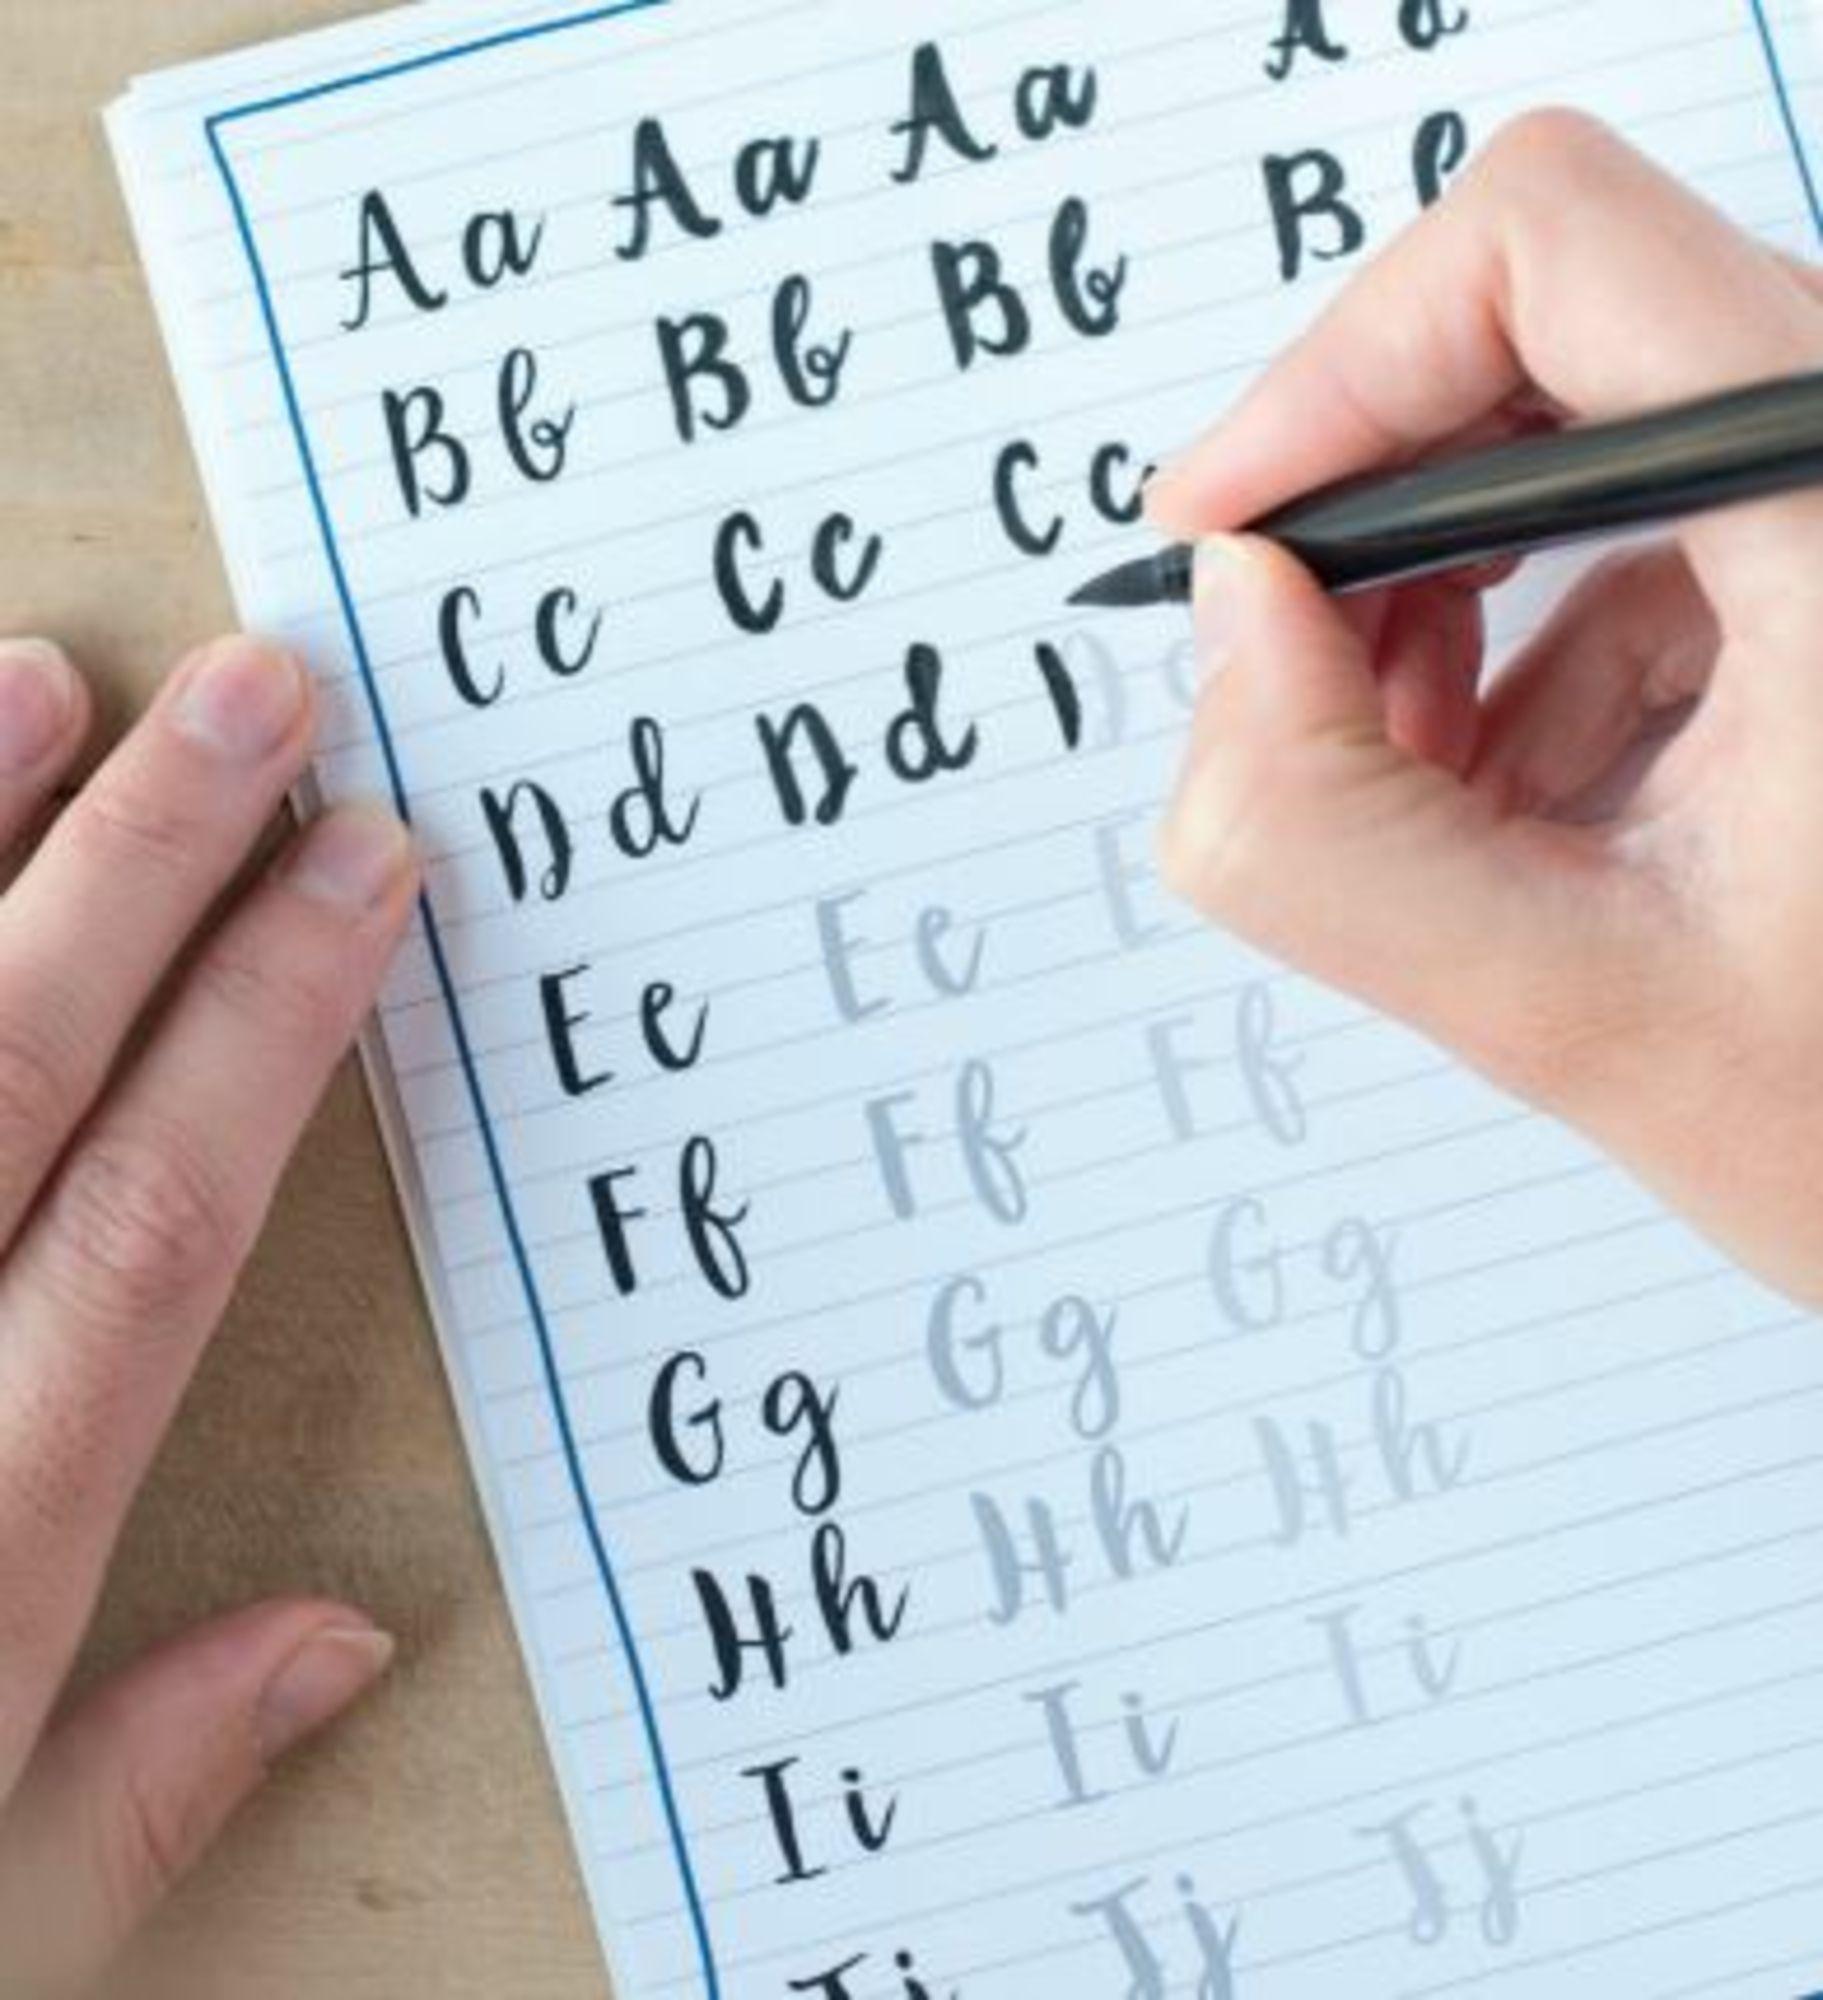 Aa Aa Aa Aa
Bb Bb Bb B
Cc Cc Cc
Dd Dd D
Ee Ee E
Ff Ff Ff
Gg Gg Gg
Hh Hh Hh
Ii Ii Ii
Jj Jj Jj